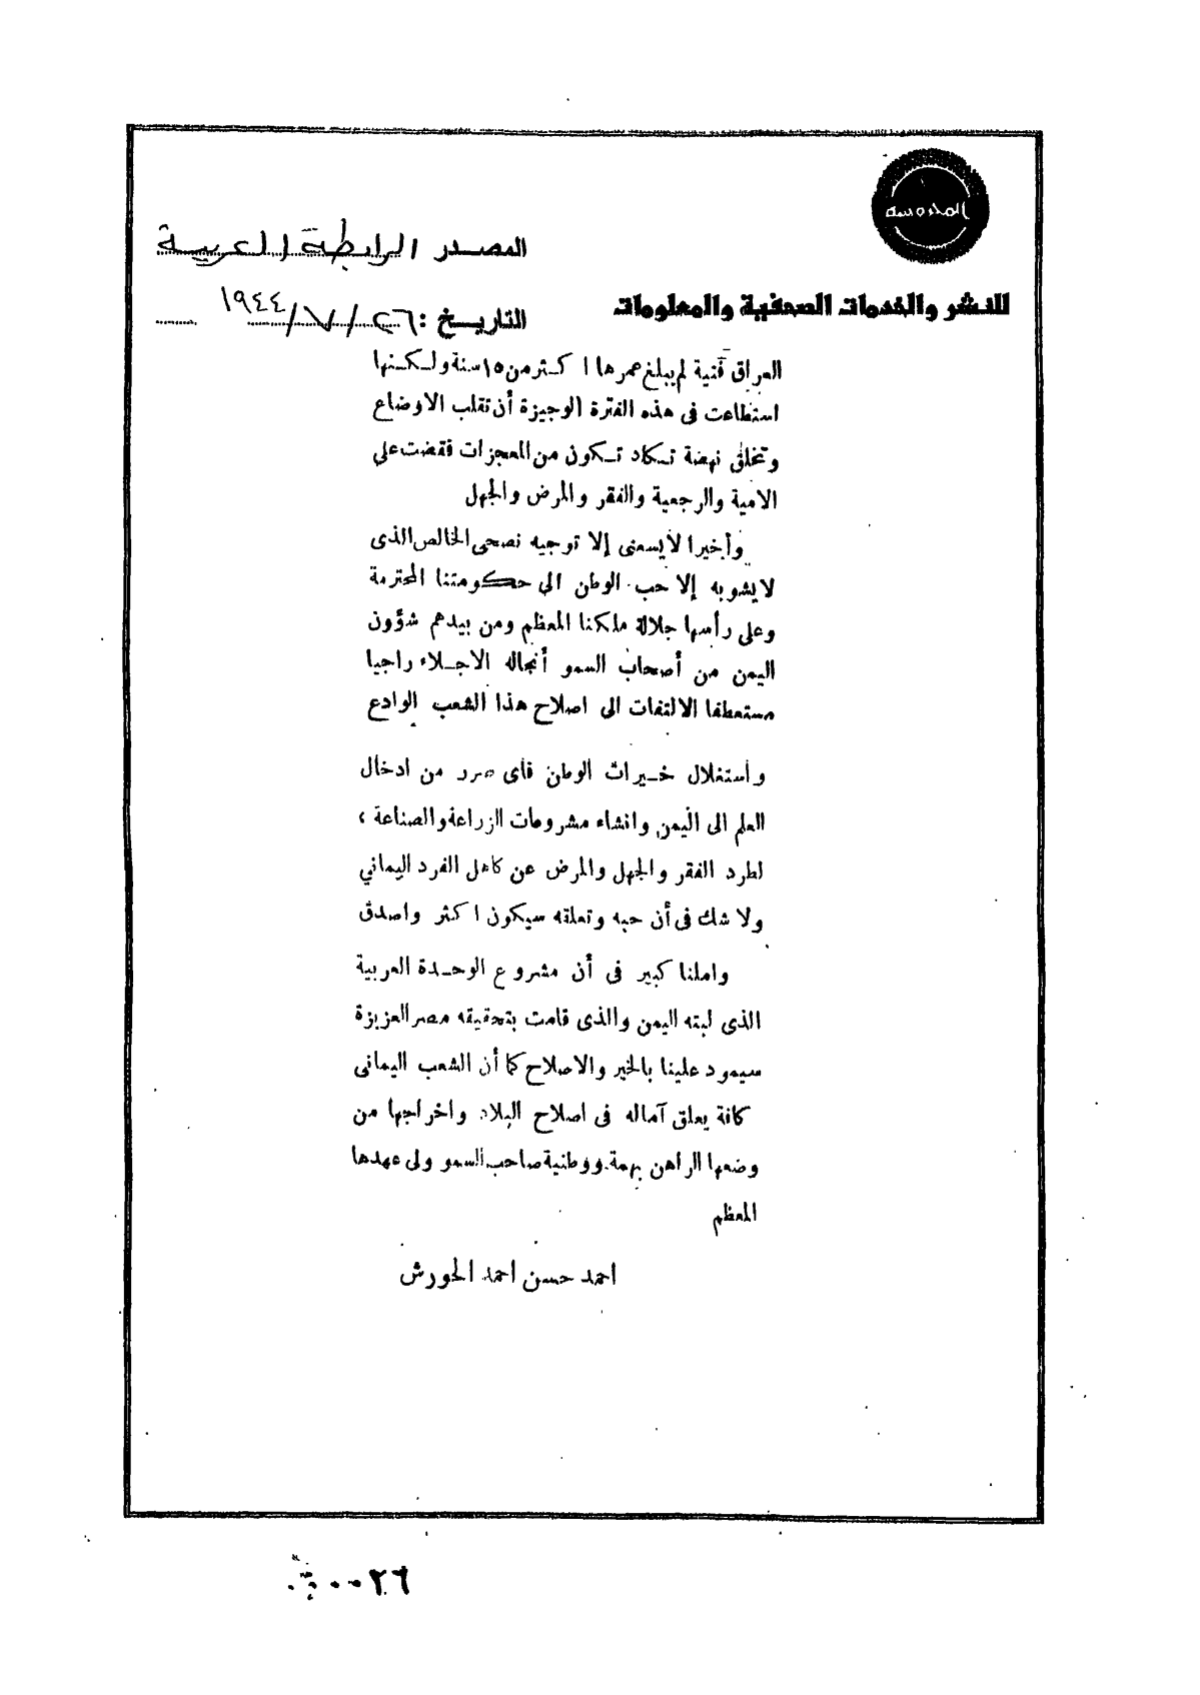 المحروسة
المصدر الرابطة العربية
للنشر والخدمات الصحفية والمعلومات
التاريخ : ٢٦/٧/١٩٤٤
العراق فتية لم يبلغ عمرها اكثر من ١٥ سنة ولكنها
استطاعت فى هذه الفترة الوجيزة أن تقلب الاوضاع
وتخلق نهضة تكاد تكون من المعجزات فقضت على
الامية والرجعية والفقر والمرض والجهل
وأخيرا لا يسعنى إلا توجيه نصحى الخالص الذى
لا يشوبه إلا حب الوطن الى حكومتنا المحترمة
وعلى رأسها جلالة ملكنا المعظم ومن بيدهم شؤون
اليمن من أصحاب السمو أنجاله الاجلاء راجيا
مستعطفا الالتفات الى اصلاح هذا الشعب الوادع
وأستغلال خيرات الوطن فأى ضرر من ادخال
العلم الى اليمن وانشاء مشروعات الزراعة والصناعة ،
لطرد الفقر والجهل والمرض عن كاهل الفرد اليماني
ولا شك فى أن حبه وتعلقه سيكون اكثر واصدق
واملنا كبير فى أن مشروع الوحدة العربية
الذى لبته اليمن والذى قامت بتحقيقه مصر العزيزة
سيعود علينا بالخير والاصلاح كما أن الشعب اليمانى
كافة يعلق آماله فى اصلاح البلاد واخراجها من
وضعها الراهن بهمة ووطنية صاحب السمو ولى عهدها
المعظم
احمد حسن احمد الحورش